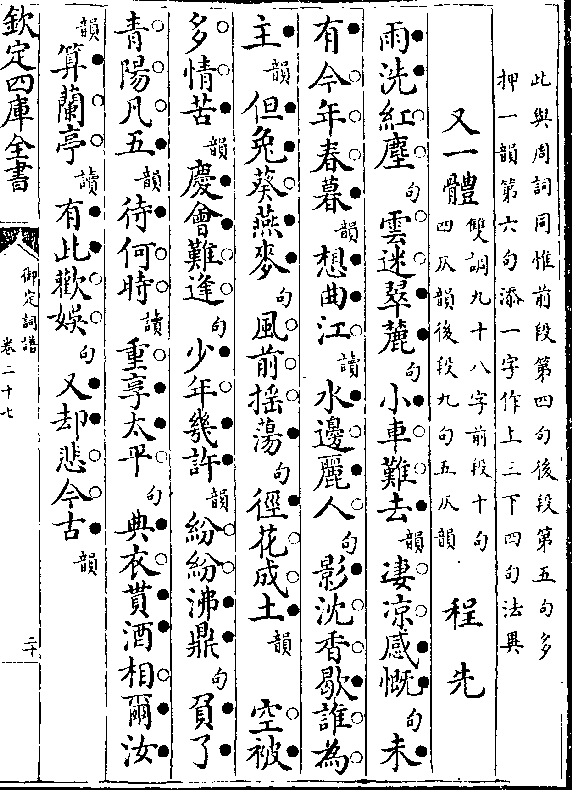 此與周詞同惟前段第四句後段第五句多
押一韻第六句添一字作上三下四句法異
又一體 雙調九十八字前段十句
四仄韻後段九句五仄韻 程先
雨洗紅塵句雲迷翠麓句小車難去韻凄凉感慨句未
有今年春暮韻想曲江讀水邊麗人句影沈香歇誰為
主韻但兔葵燕麥句風前揺蕩句徑花成土韻 空被
多情苦韻慶會難逢句少年幾許韻紛紛沸鼎句負了
青陽凡五韻待何時讀重享太平句典衣貰酒相爾汝
韻算蘭亭讀有此歡娯句又却悲今古韻
欽定四庫全書
御定詞譜
卷二十七
二十